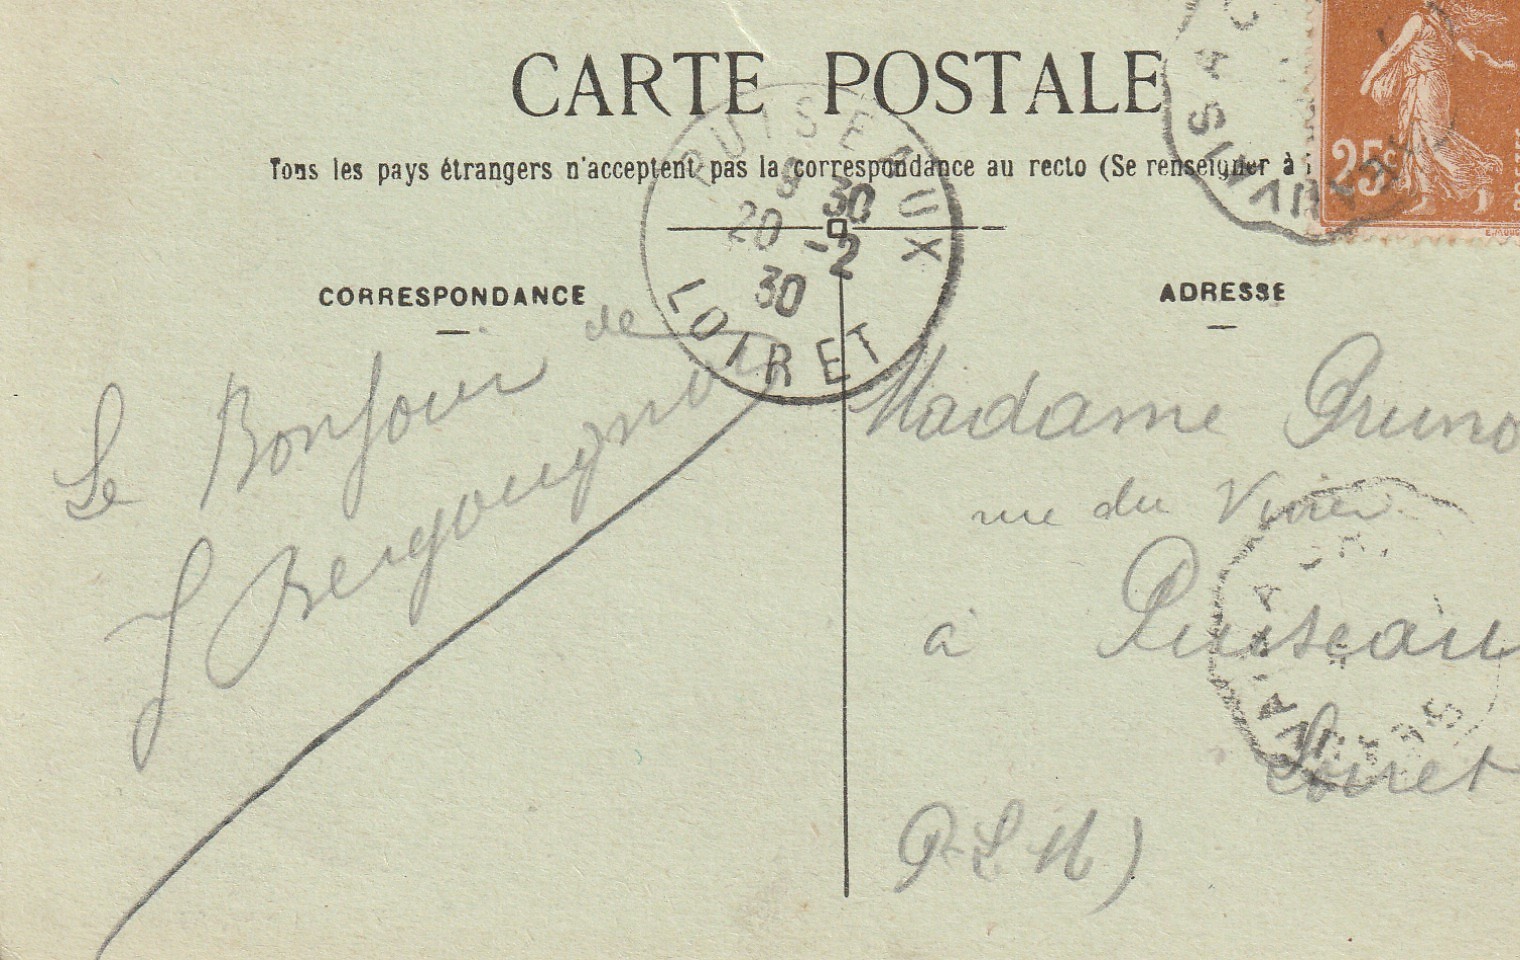 CARTE POSTALE
Tous les pays étrangers n'acceptent pas la correspondance au recto (Se renseigner à
PUISEAUX
9 30
20 -2
30
LOIRET
25c
CORRESPONDANCE
ADRESSE
Le Bonjour de
J Bergougnoux
Madame Pruno
rue du Vivier
à Puiseau
Loiret
P.L.M)